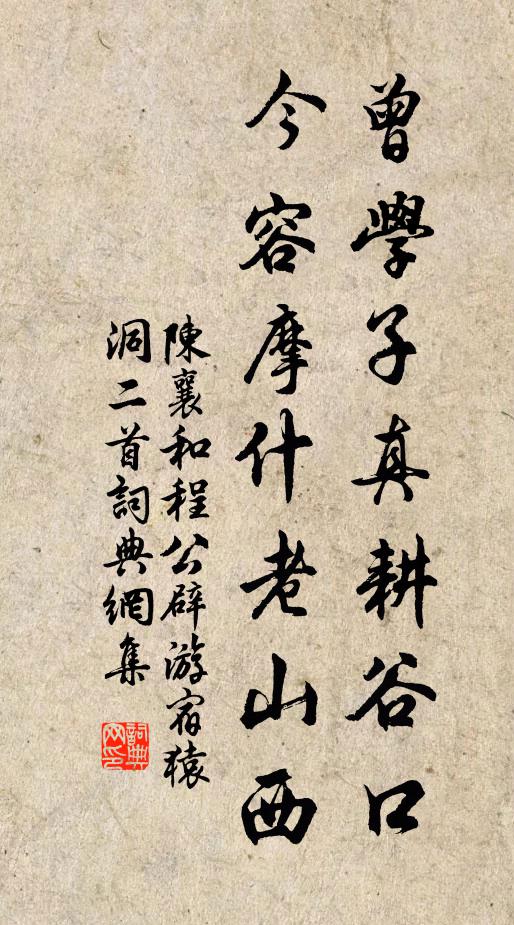 曾學子真耕谷口
今容摩什老山西
陳襄和程公辟游宿猿
洞二首詞典網集
詞典
网印